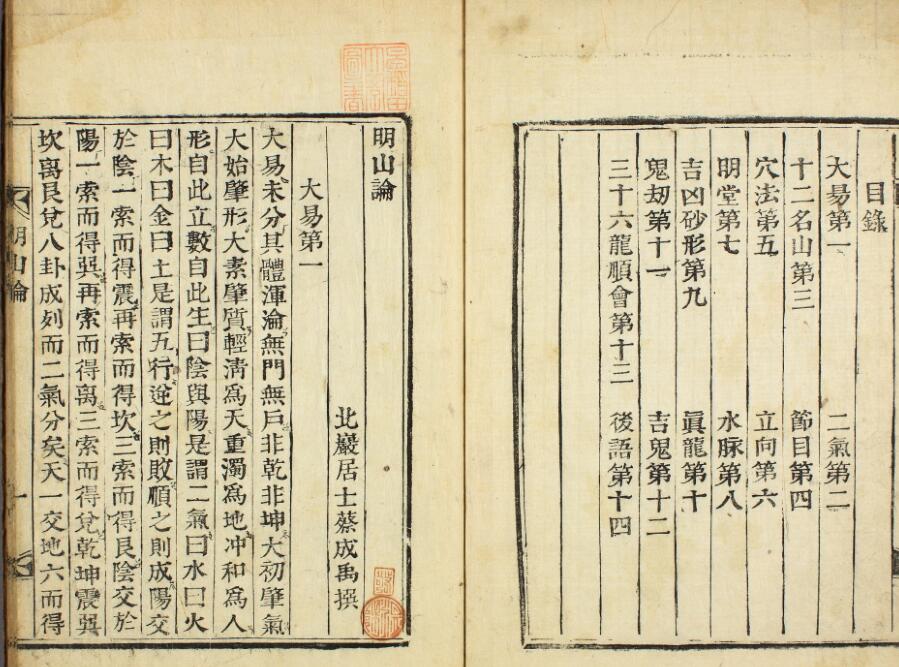 目錄
大易第一
二氣第二
十二名山第三
節目第四
穴法第五
立向第六
明堂第七
水脉第八
吉凶砂形第九
眞龍第十
鬼刼第十一
吉鬼第十二
三十六龍順會第十三
後語第十四
明山論
北巖居士蔡成禹撰
大易第一
大易未分其體渾淪無門無戶非乾非坤大初肇氣
大始肇形大素肇質輕淸爲天重濁爲地冲和爲人
形自此立數自此生曰陰與陽是謂二氣曰水曰火
曰木曰金曰土是謂五行逆之則敗順之則成陽交
於陰一索而得震再索而得坎三索而得艮陰交於
陽一索而得巽再索而得离三索而得兌乾坤震巽
坎离艮兌八卦成列而二氣分矣天一交地六而得
明山論
一